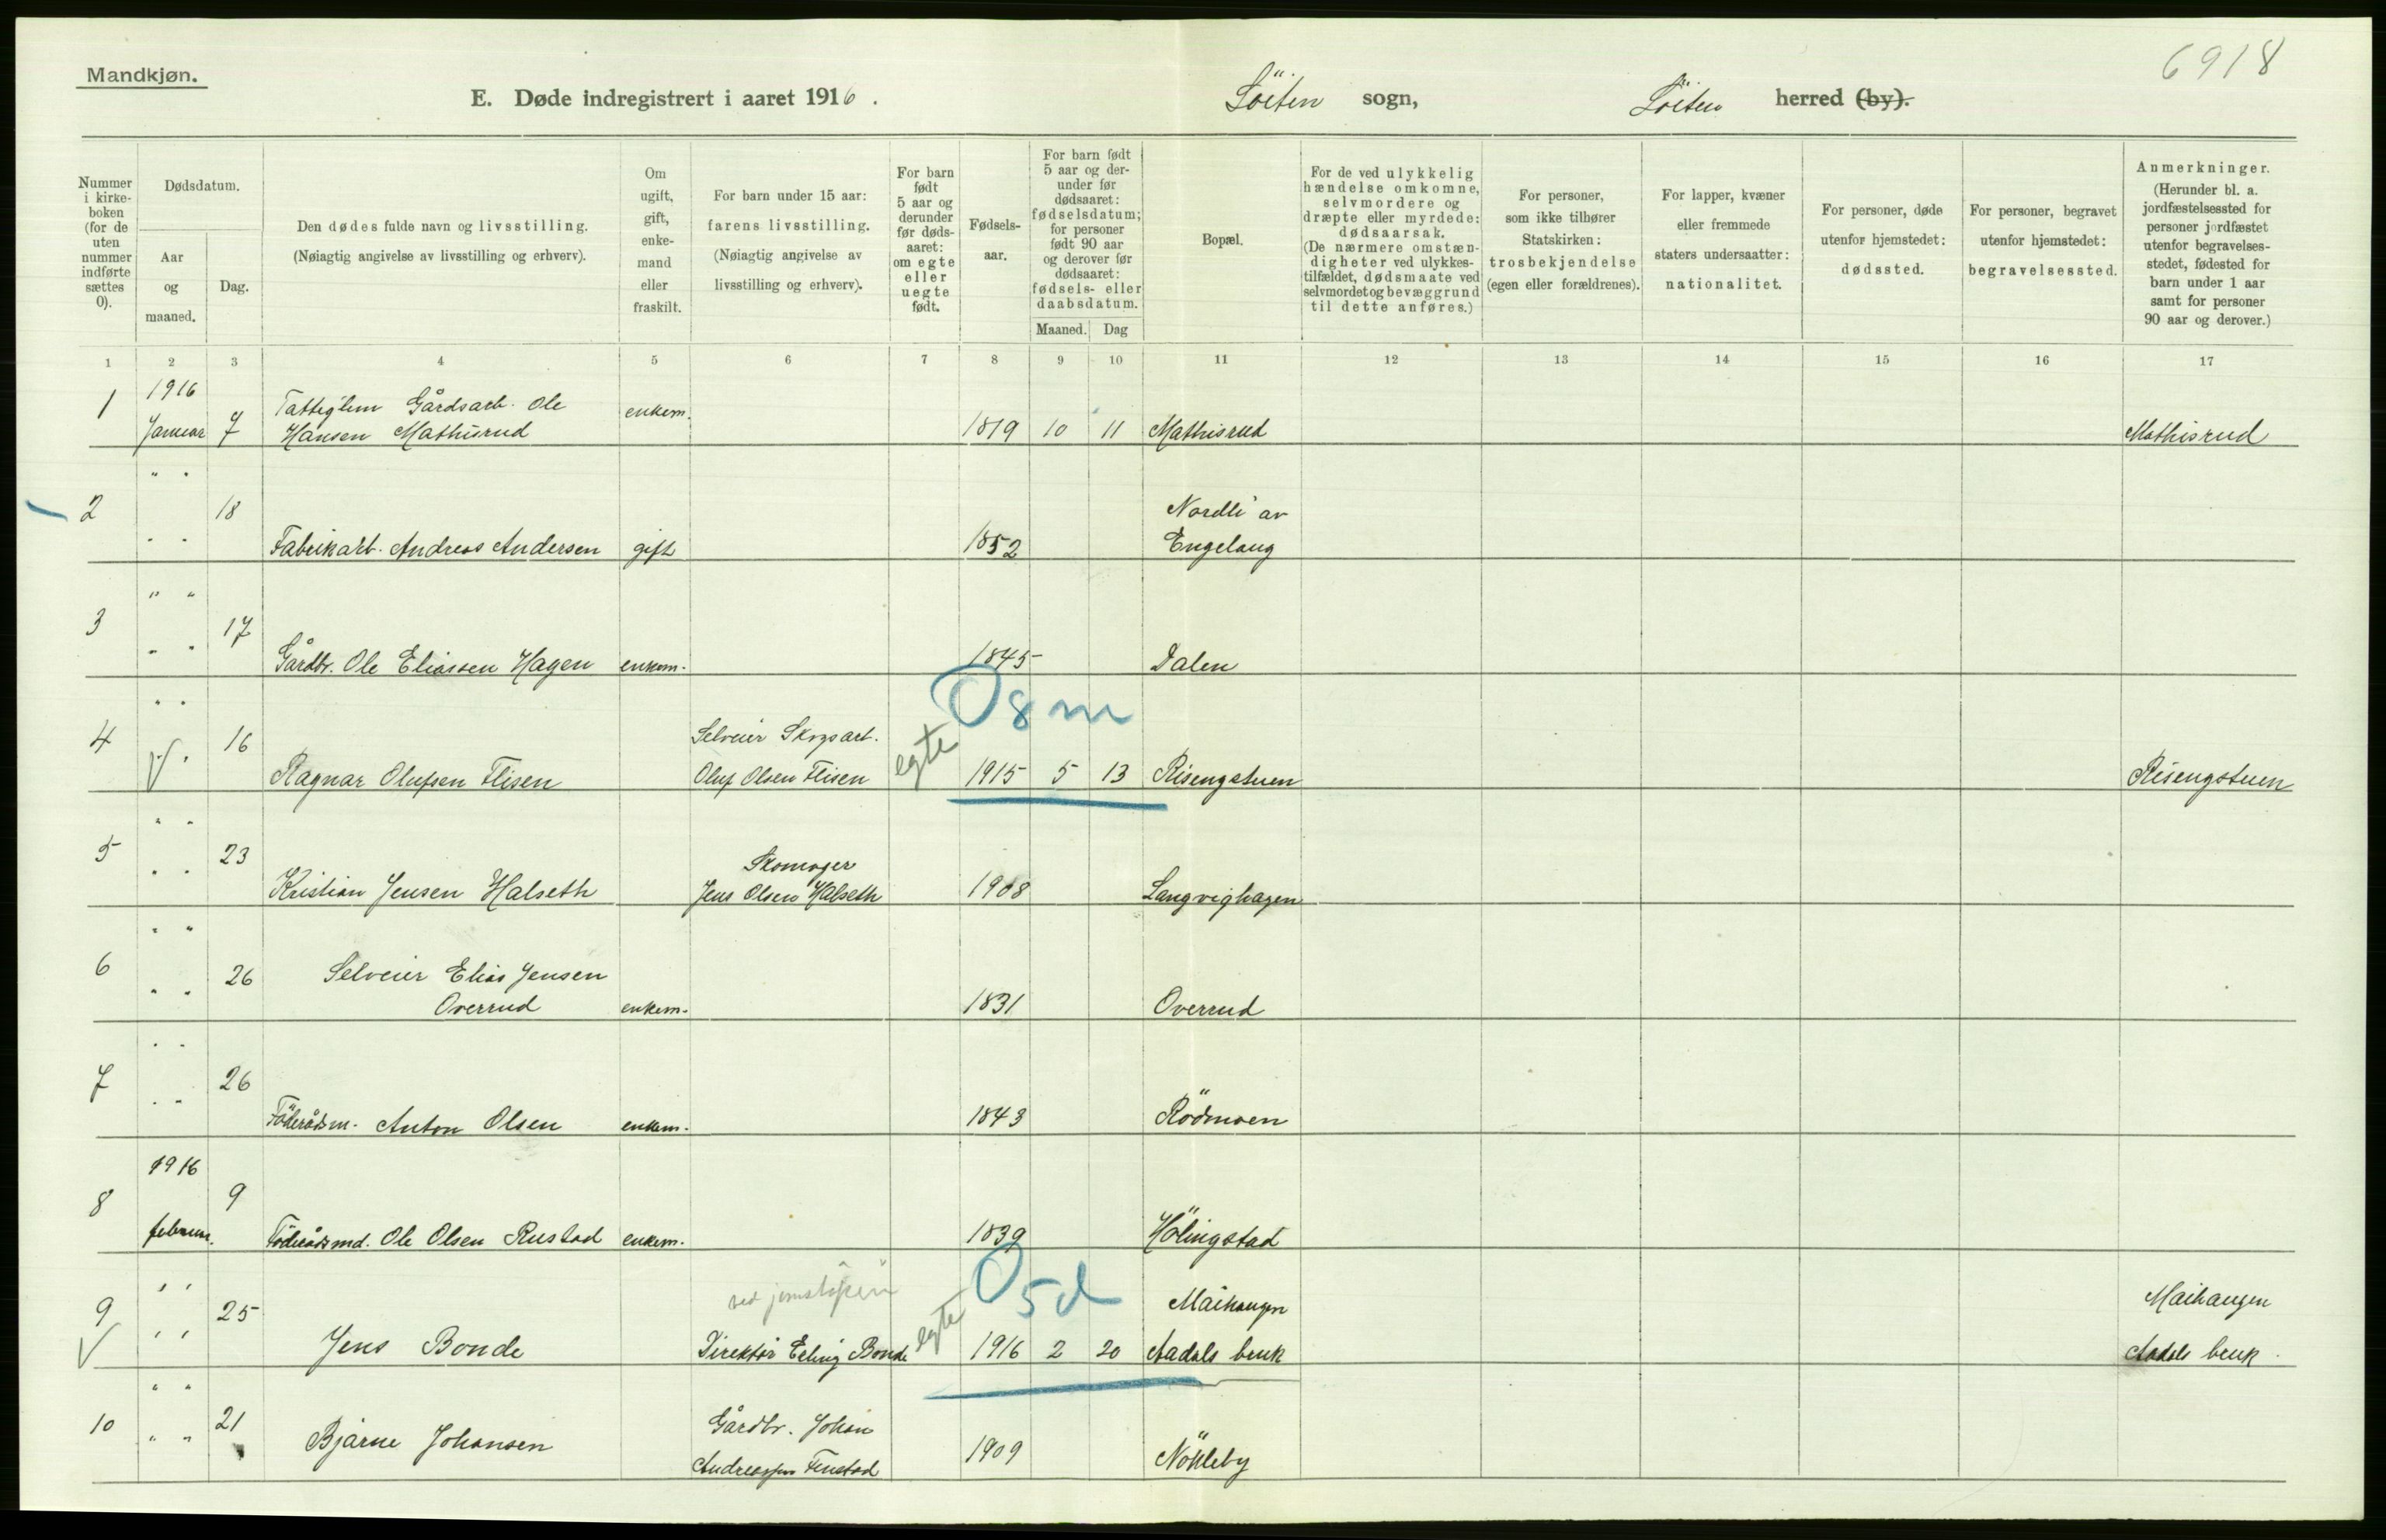 6918
Mandkjøn.
E. Døde indregistrert i aaret 1916.
Löiten sogn,
Löiten herred (by).
Nummer i kirke-boken (for de uten nummer indførte sættes 0).
Dødsdatum.
Aar og maaned.
Dag.
Den dødes fulde navn og livsstilling.
(Nøiagtig angivelse av livsstilling og erhverv).
Om ugift, gift, enke-mand eller fraskilt.
For barn under 15 aar:
farens livsstilling.
(Nøiagtig angivelse av livsstilling og erhverv).
For barn født 5 aar og derunder før døds-aaret: om egte eller uegte født.
Fødsels-aar.
For barn født 5 aar og der-under før dødsaaret: fødselsdatum; for personer født 90 aar og derover før dødsaaret: fødsels- eller daabsdatum.
Maaned. Dag
Bopæl.
For de ved ulykkelig hændelse omkomne, selvmordere og dræpte eller myrdede: dødsaarsak. (De nærmere omstæn-digheter ved ulykkes-tilfældet, dødsmaate ved selvmordet og bevæggrund til dette anføres.)
For personer, som ikke tilhører Statskirken: trosbekjendelse (egen eller forældrenes).
For lapper, kvæner eller fremmede staters undersaatter: nationalitet.
For personer, døde utenfor hjemstedet: dødssted.
For personer, begravet utenfor hjemstedet: begravelsessted.
Anmerkninger.
(Herunder bl. a. jordfæstelsessted for personer jordfæstet utenfor begravelses-stedet, fødested for barn under 1 aar samt for personer 90 aar og derover.)
1 2 3 4 5 6 7 8 9 10 11 12 13 14 15 16 17
1 1916 Gårdsarb. Ole enkem.
Januar 7 Hansen Mathisrud 1819 10 11 Mathisrud Mathisrud
" "
2 18 Nordli av
" " Fabrikarb. Andreas Andersen gift 1852 Engelaug
" "
3 17
" " Gårdbr. Ole Eliassen Hagen enkem. 1845 Dalen
" " 0 8 m
4 16 Selveier Skogsarb.
" Ragnar Olufsen Flisen Oluf Olsen Flisen egte 1915 5 13 Risengstuen Risengstuen
" "
5 23 Skomager
" " Kristian Jensen Halseth Jens Olsen Halseth 1908 Langvighagen
" "
6 26 Selveier Elias Jensen
" " Overrud enkem. 1831 Overrud
" "
7 26
" " Föderådsm. Anton Olsen enkem. 1843 Rödmoen
1916
8 9
februar. Föderådsmd. Ole Olsen Rustad enkem. 1839 Hölingstad
" " ved 0 5 d
9 25 Maihaugen Maihaugen
" " Jens Bonde Direktör Erling Bonde egte 1916 2 20 Aadals bruk Aadals bruk.
" "
10 21 Gårdbr. Johan
" " Bjarne Johansen Andreassen Finstad 1909 Nökleby